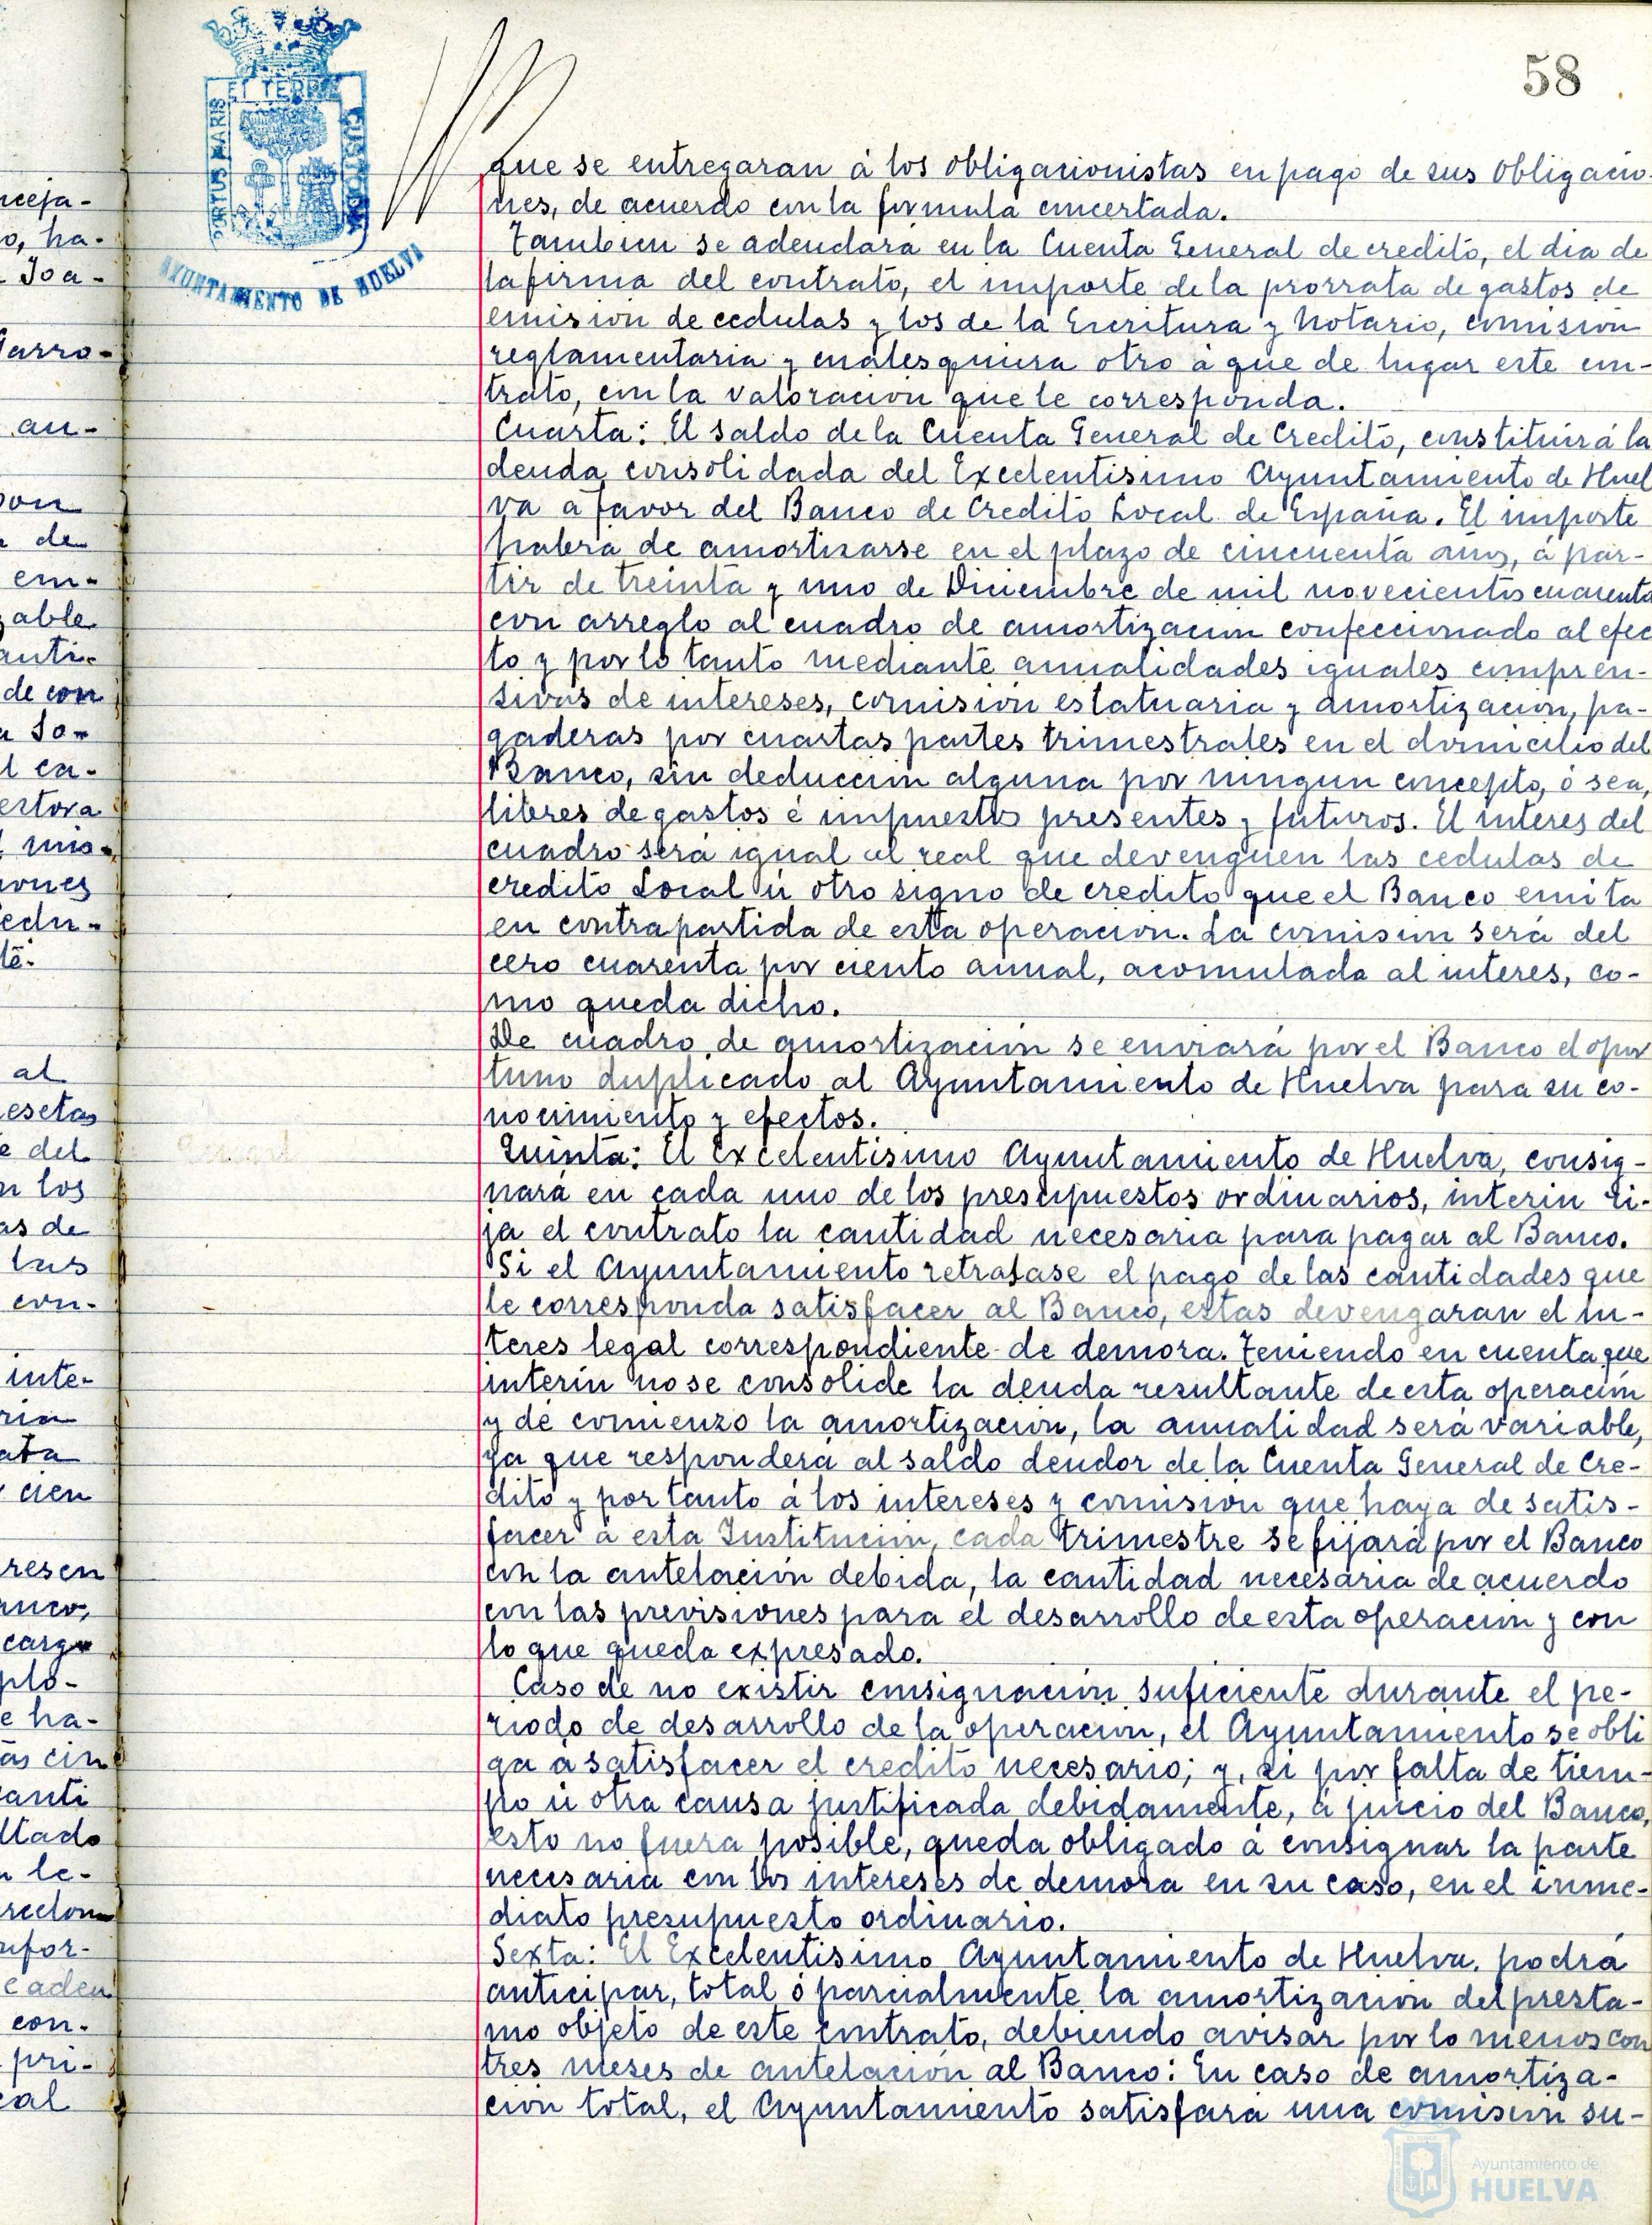 58
PORTUS MARIS
ET TERRE
CUSTODIA
AYUNTAMIENTO DE HUELVA
que se entregaran á los obligacionistas en pago de sus obligacio-
nes, de acuerdo con la formula concertada.
Tambien se adeudará en la Cuenta General de credito, el dia de
la firma del contrato, el importe de la prorrata de gastos de
emision de cedulas y los de la Escritura y Notario, comision
reglamentaria y cualesquiera otro á que de lugar este con-
trato, con la valoracion que le corresponda.
Cuarta: El saldo de la Cuenta General de Credito, constituirá la
deuda consolidada del Excelentisimo Ayuntamiento de Huel
va a favor del Banco de Credito Local de España. El importe
habrá de amortizarse en el plazo de cincuenta años, á par-
tir de treinta y uno de Diciembre de mil novecientos cuarenta
con arreglo al cuadro de amortizacion confeccionado al efec
to y por lo tanto mediante anualidades iguales compren-
sivas de intereses, comisión estatuaria y amortizacion, pa-
gaderas por cuartas partes trimestrales en el domicilio del
Banco, sin deduccion alguna por ningun concepto, ó sea,
libres de gastos é impuestos presentes y futuros. El interes del
cuadro será igual al real que devenguen las cedulas de
credito Local ú otro signo de credito que el Banco emita
en contrapartida de esta operacion. La comision será del
cero cuarenta por ciento anual, acomulada al interes, co-
mo queda dicho.
De cuadro de amortización se enviará por el Banco el opor
tuno duplicado al Ayuntamiento de Huelva para su co-
nocimiento y efectos.
Quinta: El Excelentisimo Ayuntamiento de Huelva, consig-
nará en cada uno de los presupuestos ordinarios, interin ri-
ja el contrato la cantidad necesaria para pagar al Banco.
Si el Ayuntamiento retrasase el pago de las cantidades que
le corresponda satisfacer al Banco, estas devengaran el in-
teres legal correspondiente de demora. Teniendo en cuenta que
interin no se consolide la deuda resultante de esta operacion
y dé comienzo la amortizacion, la anualidad será variable,
ya que responderá al saldo deudor de la Cuenta General de Cre-
dito y por tanto á los intereses y comision que haya de satis-
facer á esta Institucion, cada trimestre se fijará por el Banco
con la antelacion debida, la cantidad necesaria de acuerdo
con las previsiones para el desarrollo de esta operacion y con
lo que queda expresado.
Caso de no existir consignacion suficiente durante el pe-
riodo de desarrollo de la operacion, el Ayuntamiento se obli
ga á satisfacer el credito necesario; y, si por falta de tiem-
po ú otra causa justificada debidamente, á juicio del Banco,
esto no fuera posible, queda obligado á consignar la parte
necesaria con los intereses de demora en su caso, en el inme-
diato presupuesto ordinario.
Sexta: El Excelentisimo Ayuntamiento de Huelva, podrá
anticipar, total ó parcialmente la amortizacion del presta-
mo objeto de este contrato, debiendo avisar por lo menos con
tres meses de antelacion al Banco: En caso de amortiza-
cion total, el Ayuntamiento satisfará una comision su-
Ayuntamiento de
HUELVA